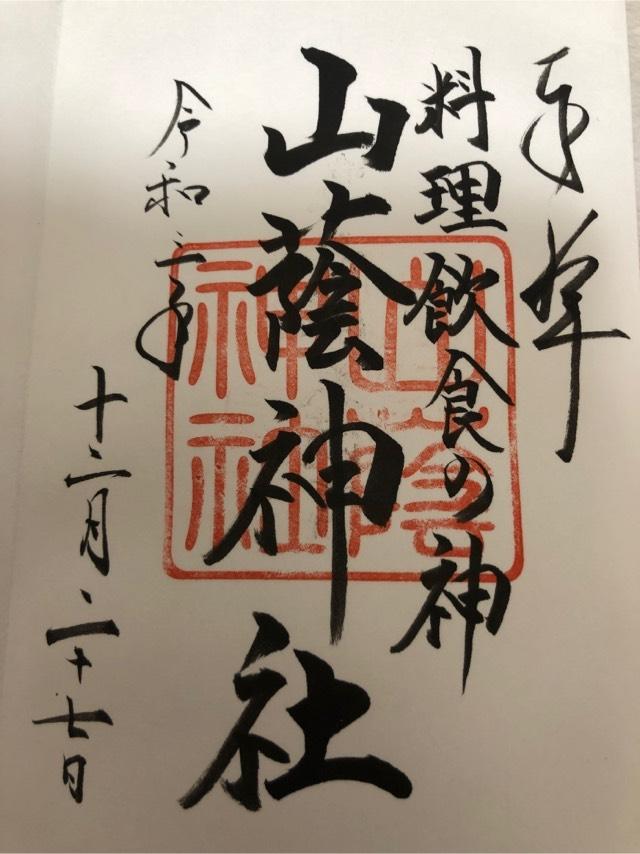 奉拝
料理飲食の神
山蔭神社
山蔭神社
令和三年
十二月二十七日